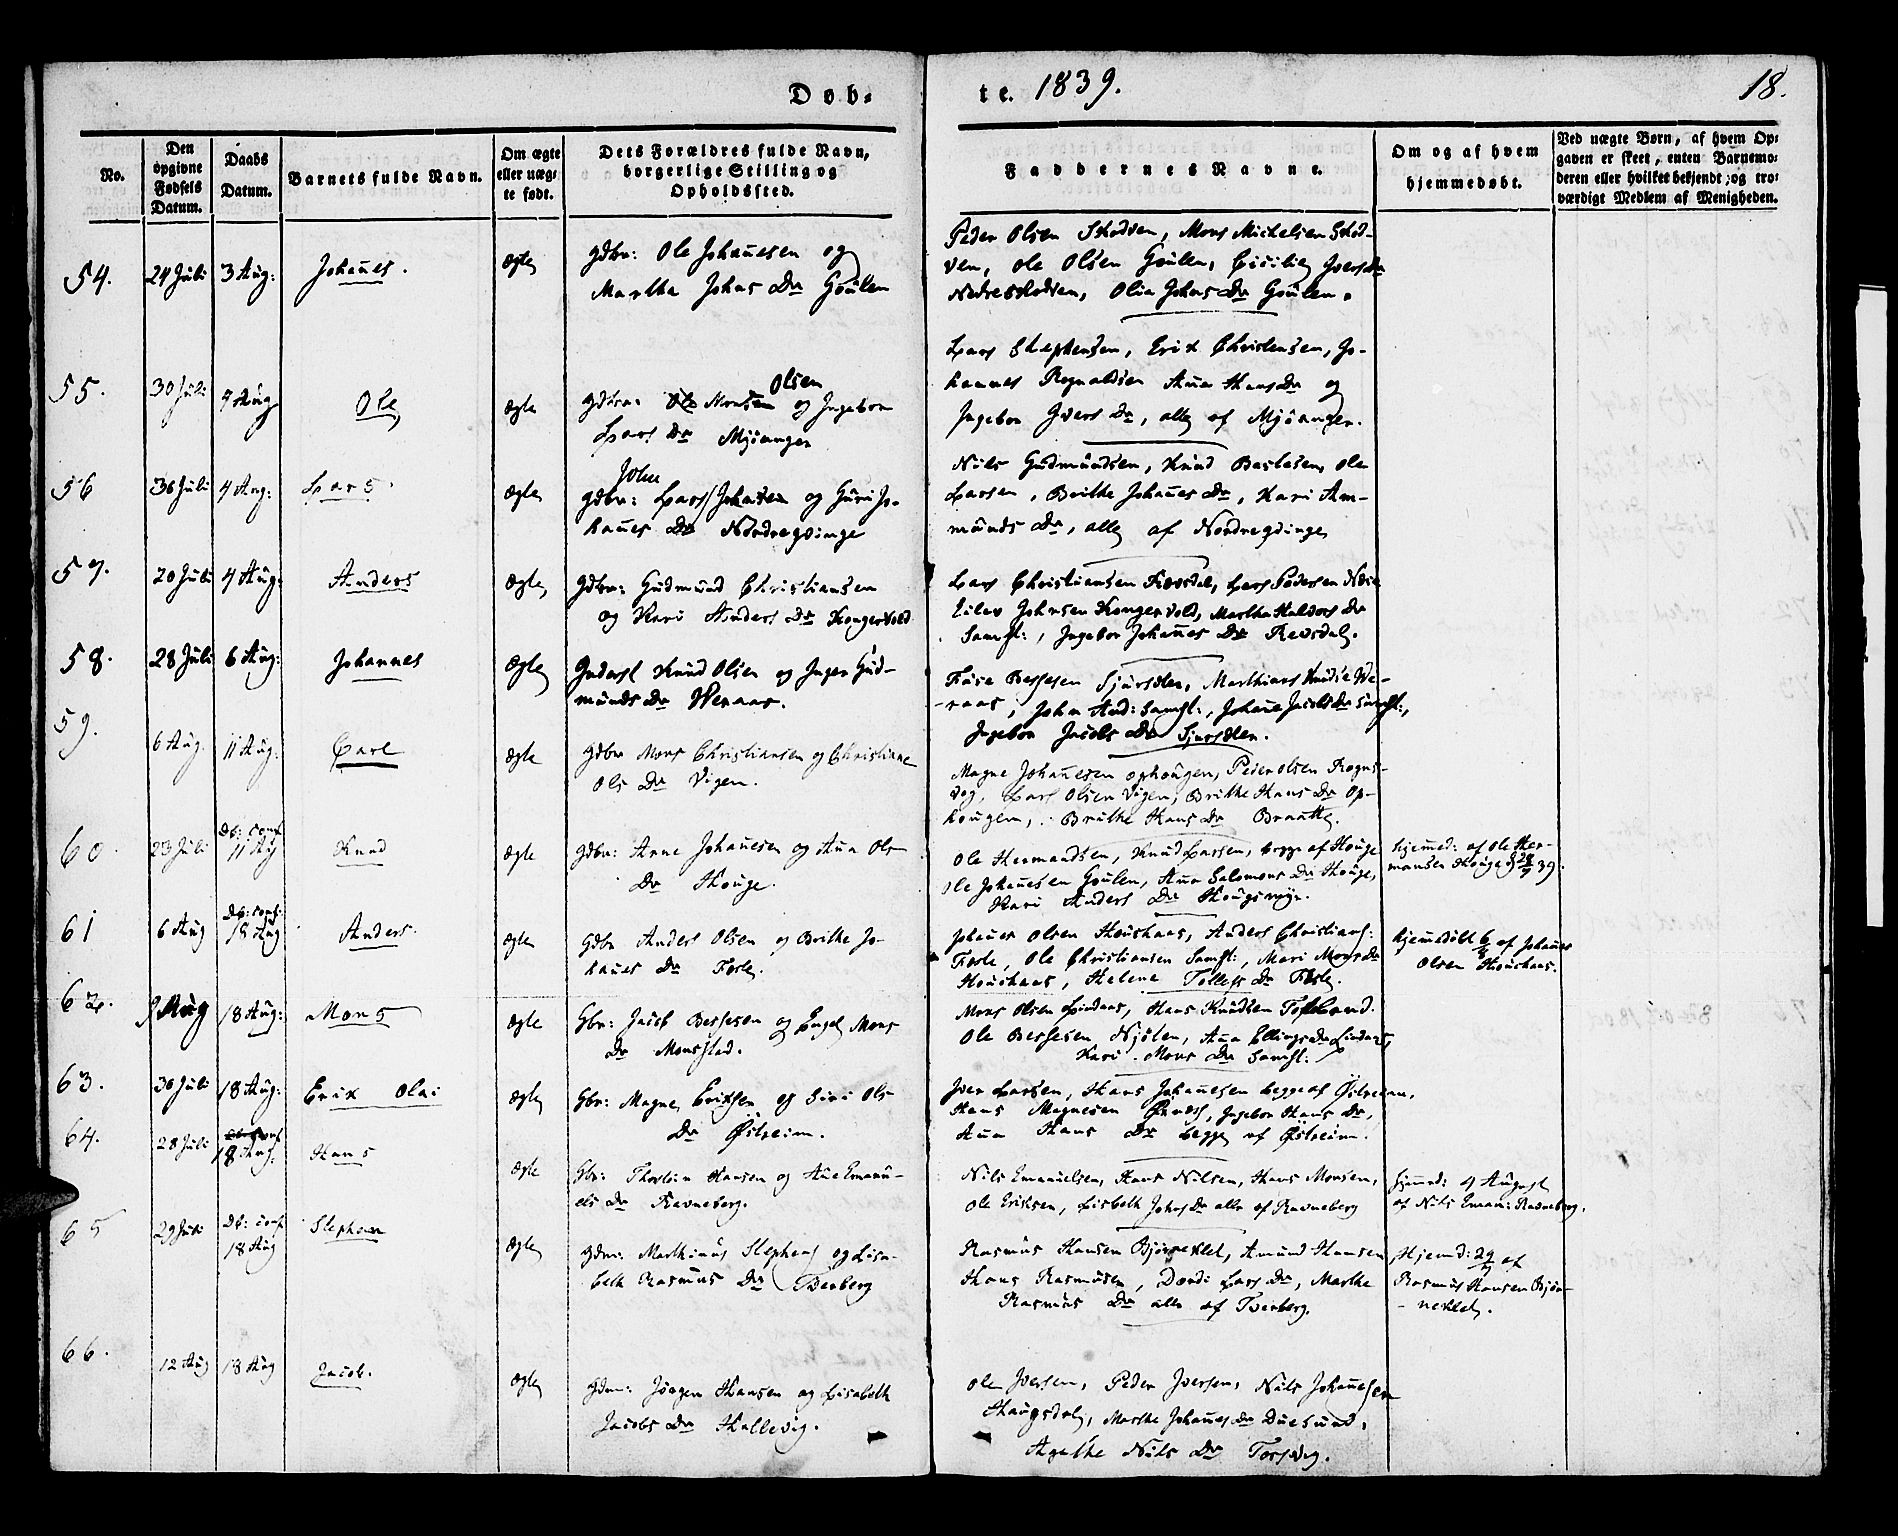 Døb-
te. 1839.
18.
No.
Den opgivne Fødsels Datum.
Daabs Datum.
Barnets fulde Navn.
Om ægte eller uægte født.
Dets Forældres fulde Navn, borgerlige Stilling og Opholdssted.
Faddernes Navne.
Om og af hvem hjemmedøbt.
Ved uægte Børn, af hvem Opgaven er skeet, enten Barnemoderen eller hvilket bekjendt, og troværdigt Medlem af Menigheden.
54. 24 Juli 3 Aug: Johañes. Ægte
Gdbr: Ole Johañesen og
Martha Johns Dr Goulen
Peder Olsen Skodven, Mons Michelsen Skod-
ven, Ole Olsen Goulen, Cicilie Ivers Dr
Nedreskodven, Olia Johns Dr Goulen.
55. 30 Juli 4 Aug Ole Ægte
Olsen
Gdbr: Monsen og Ingebor
Lars Dr Mjöanger
Lars Stephensen, Erik Christensen, Jo-
hannes Rognaldsen Aña Hans Dr og
Ingebor Ivers Dr, alle af Mjöanger.
56 30 Juli 4 Aug: Lars. Ægte
John
Gdbr: Lars Johnsen og Guri Jo-
hañes Dr Nordreqvinge
Nils Gudmundsen, Knud Ole
Larsen, Brithe Johañes Dr, Kari Am-
munds Dr, alle af Nordreqvinge
57. 20 Juli 4 Aug: Anders Ægte
Gdbr: Gudmund Christiansen
og Kari Anders Dr Kongervold
Lars Christiansen Lars Pedersen
Eilev Johnsen Kongervold, Martha Haldors Dr
Samst:, Ingebor Johañes Dr
58. 28 Juli 6 Aug: Johannes Ægte
Knud Olsen og Inger Gud-
munds Dr Weraas.
Bessesen Sjursdlen, We-
raas, John And: Samst:, Johañe Jacobs Dr Samst:,
Ingebor Jacobs Dr Sjursdlen.
59. 6 Aug. 11 Aug: Carl Ægte
Gdbr Mons Christiansen og Christianne
Ols Dr Vigen.
Magne Johañesen Ophougen, Peder Olsen Rogns-
vog, Lars Olsen Vigen, Brithe Hans Dr Op-
hougen, Brithe Hans Dr Braatte.
60. 23 Juli Db: conf. 11 Aug Knud Ægte
Gdbr: Arne Johañesen og Aña Ols
Dr Houge.
Ole Hermandsen, Knud Larsen, begge af Houge
Ole Johañesen Goulen, Aña Salomons Dr Houge,
Kari Anders Dr Hougsmyr.
Hjemmed: af Ole Her-
mansen Houge d 28/7 39.
61 6 Aug Db: conf: 18 Aug Anders. Ægte
Gdbr Anders Olsen og Brithe Jo-
hañes Dr
Johañes Olsen Anders Christians:
Ole Christiansen Samst:, Mari Mons Dr
Helene Dr
hjemmedöbt 6/8 af Johañes
Olsen
62. 9 Aug 18 Aug: Mons Ægte
Gbr: Jacob Bessesen og Engel Mons
Dr Monsstad.
Mons Olsen Lindaas, Hans Knudsen
Ole Bessesen Njöten, Aña Ellings Dr Lindaas,
Kari Mons Dr Samst:
63. 30 Juli 18 Aug: Erik Olai Ægte
Gbr: Magne Eriksen og Siri Ols
Dr Östreim.
Iver Larsen, Hans Johañesen begge af Östreim,
Hans Magnesen Ingebor Hans Dr,
Aña Hans Dr begge af Östreim.
64. 28 Juli 18 Aug. Hans Ægte
Gbr: Thorbön Hansen og Añe Emanu-
els Dr Ravneberg.
Nils Emanuelsen, Hans Nilsen, Hans Monsen,
Ole Eriksen, Lisbeth Johns Dr alle af Ravneberg
Hjemmd: 4 August
af Nils Eman: Ravneberg.
65 29 Juli Db: conf 18 Aug Stephan Ægte
Gdm: Mathias Stephens og Lisa-
beth Rasmus Dr Tverberg
Rasmus Hansen Björneklet, Amund Hansen
Hans Rasmusen, Dordi Lars Dr, Marthe
Rasmus Dr alle af Tverberg.
Hjemd: 29/7 af
Rasmus Hansen Björ-
neklet.
66. 12 Aug 18 Aug Jacob. Ægte
Gdm: Jörgen Hansen og Lisabeth
Jacobs Dr Hallevig.
Ole Iversen, Peder Iversen, Nils Johañesen
Haugsdal, Marthe Johañes Dr Duesund,
Agathe Nils Dr